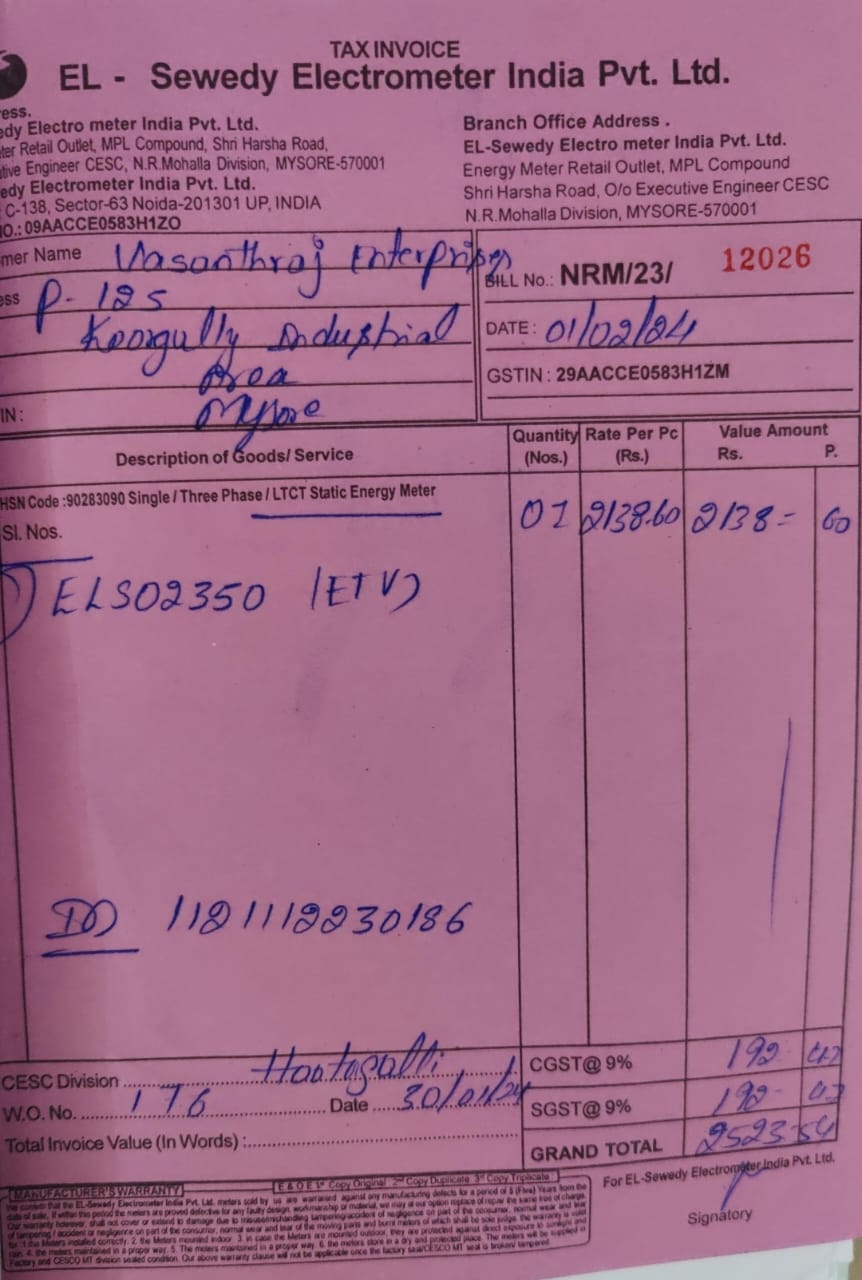 TAX INVOICE
EL - Sewedy Electrometer India Pvt. Ltd.
ess.
edy Electro meter India Pvt. Ltd.
ter Retail Outlet, MPL Compound, Shri Harsha Road,
tive Engineer CESC, N.R.Mohalla Division, MYSORE-570001
edy Electrometer India Pvt. Ltd.
C-138, Sector-63 Noida-201301 UP, INDIA
O.: 09AACCE0583H1ZO
Branch Office Address .
EL-Sewedy Electro meter India Pvt. Ltd.
Energy Meter Retail Outlet, MPL Compound
Shri Harsha Road, O/o Executive Engineer CESC
N.R.Mohalla Division, MYSORE-570001
mer Name Vasanthraj Enterprises
ess P-125
Koorgully Industrial
Area
IN: Mysore
BILL No.: NRM/23/ 12026
DATE: 01/02/24
GSTIN : 29AACCE0583H1ZM
Description of Goods/ Service Quantity (Nos.) Rate Per Pc (Rs.) Value Amount Rs. P.
HSN Code :90283090 Single / Three Phase / LTCT Static Energy Meter
01 2138.60 2138= 60
Sl. Nos.
1) ELS02350 (ETV)
DD 1121112230186
CESC Division Hootagalli
W.O. No. 176 Date 30/01/24
Total Invoice Value (In Words) :
CGST@ 9% 192 47
SGST@ 9% 192- 47
GRAND TOTAL 2523 54
For EL-Sewedy Electrometer India Pvt. Ltd.
Signatory
MANUFACTURER'S WARRANTY
E & O E 1st Copy Original 2nd Copy Duplicate 3rd Copy Triplicate